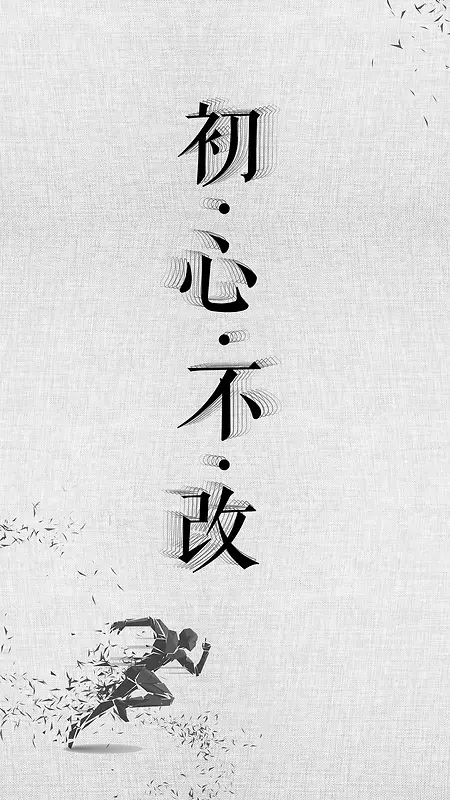 初·心·不·改